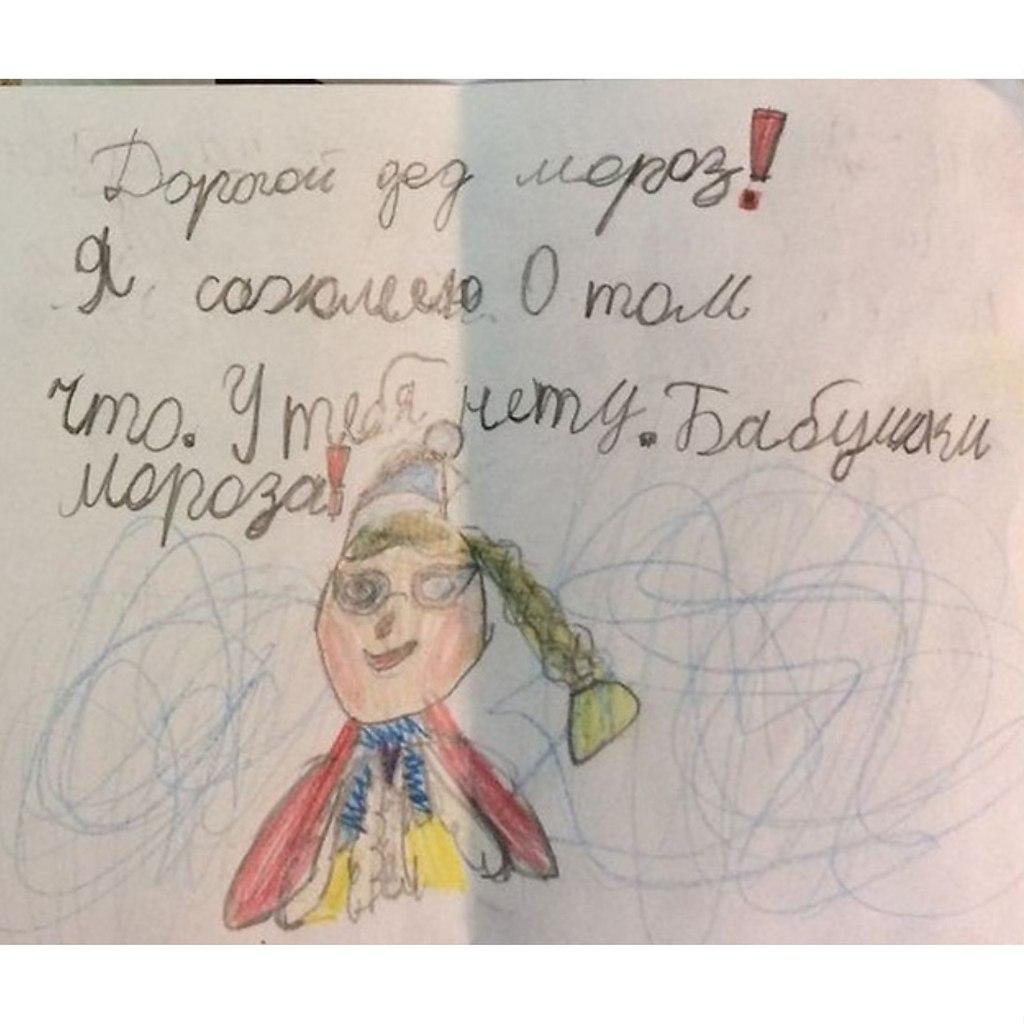 Дорогой дед мороз!
Я сожалею О том
что. У тебя нету. Бабушки
мороза!